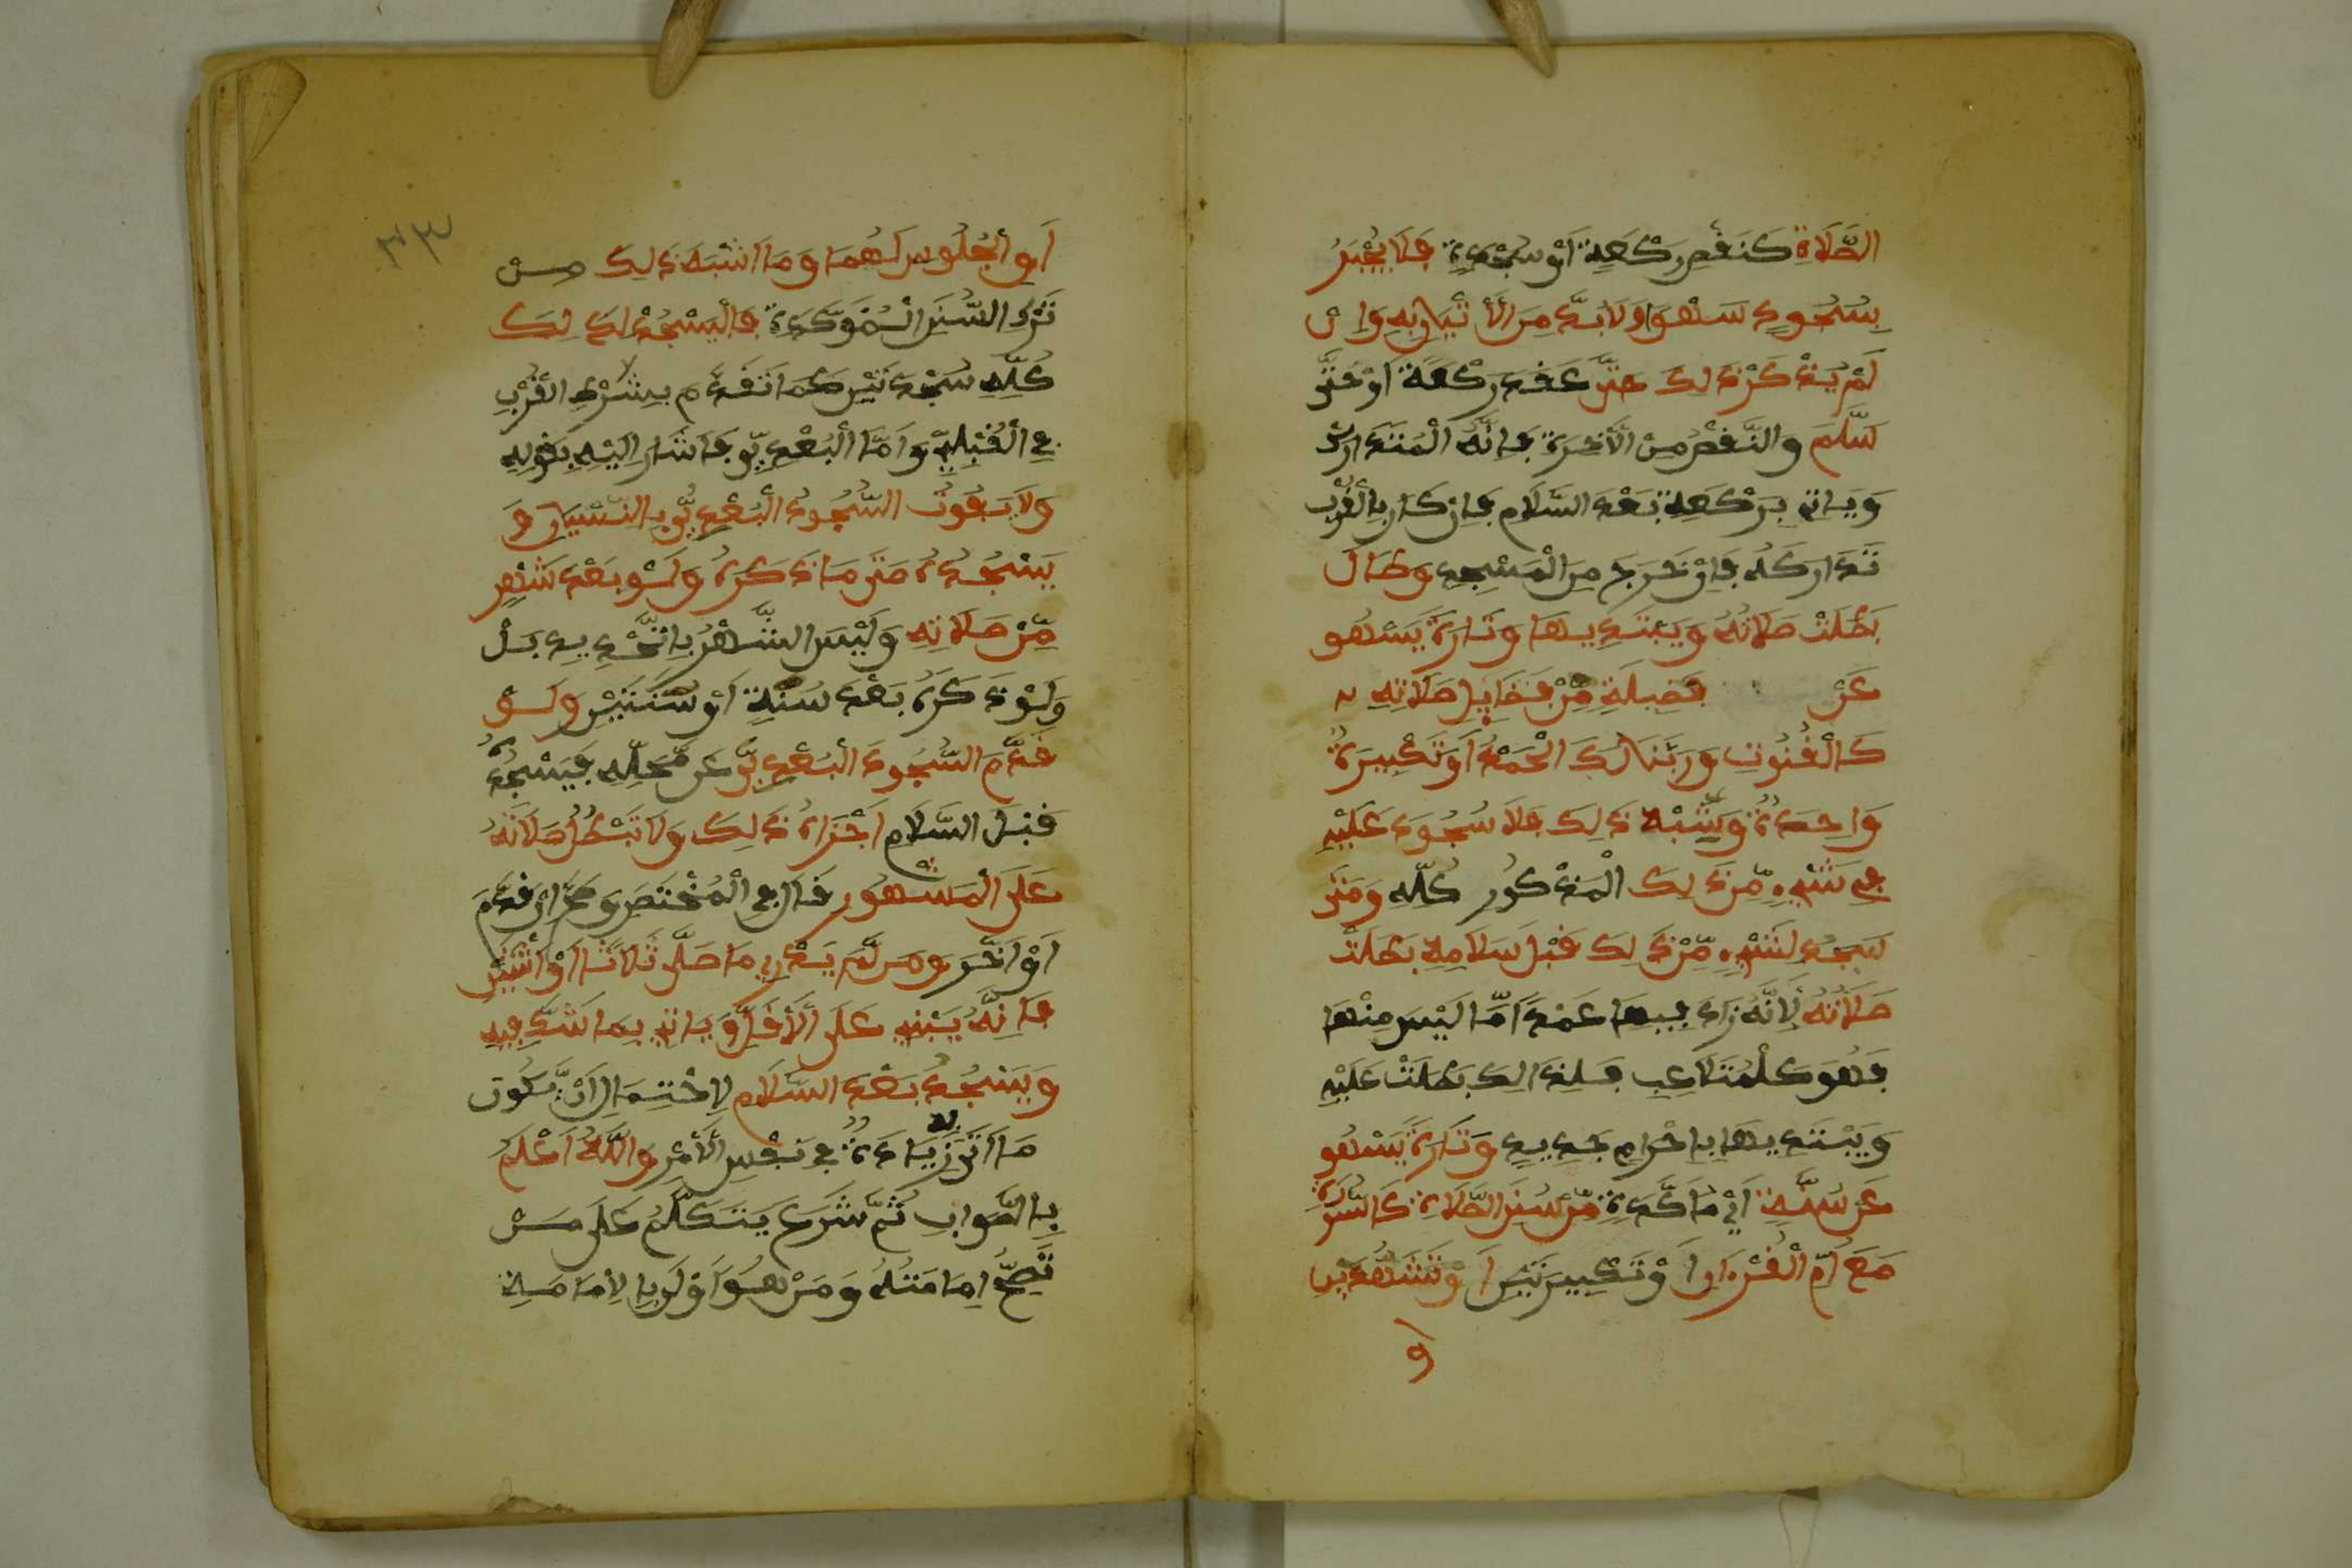 الصَّلَاةِ كَنَقْصِ رَكْعَةٍ اَوْ سَجْدَةٍ فَلَا يُجْبَرُ
بِسُجُودِ سَهْوٍ وَلَا بُدَّ مِنَ الْأَتْيَانِ بِهِ وَإِنْ
لَمْ يَذْكُرْ ذَلِكَ حَتَّى عَقَدَ رَكْعَةً اَوْ حَتَّى
سَلَّمَ وَالنَّقْصُ مِنَ الْأَخِرَةِ فَإِنَّهُ الْمُتَدَارَكُ
وَيَاتِي بِرَكْعَةٍ بَعْدَ السَّلَامِ فَإِنْ كَانَ بِالْقُرْبِ
تَدَارَكَهُ فَإِنْ خَرَجَ مِنَ الْمَسْجِدِ وَطَالَ
بَطَلَتْ صَلَاتُهُ وَيَبْتَدِيهَا وَتَارَةً يَسْهُو
عَنْ فَضِيلَةٍ مِّنْ فَضَايِلِ صَلَاتِهِ
كَالْقُنُوتِ وَرَبَّنَا لَكَ الْحَمْدُ اَوْ تَكْبِيرَةٌ
وَاحِدَةٌ وَشِبْهُ ذَلِكَ فَلَا سُجُودَ عَلَيْهِ
فِي شَيْءٍ مِّنْ ذَلِكَ الْمَذْكُورِ كُلِّهِ وَمَتَى
سَجَدَ لِشَيْءٍ مِّنْ ذَلِكَ قَبْلَ سَلَامِهِ بَطَلَتْ
صَلَاتُهُ لِأَنَّهُ زَادَ فِيهَا عَمْدًا مَّا لَيْسَ مِنْهَا
فَهُوَ كَلْمُتَلَاعِبِ فَلِذَالِكَ بَطَلَتْ عَلَيْهِ
وَيَبْتَدِيهَا بِإِحْرَامٍ جَدِيدٍ وَتَارَةً يَسْهُو
عَنْ سُنَّةٍ اَيْ مُأَكَّدَةٍ مِّنْ سُنَنِ الصَّلَاةِ كَالسُّورَةِ
مَعَ اُمِّ الْقُرْءَانِ اَوْ تَكْبِيرَتَيْنِ اَوْ تَشَهُّدَيْنِ
اَو
٣٣
اَوِ الْجُلُوسِ لَهُمَا وَمَا اَشْبَهَ ذَلِكَ مِنْ
تَرْكِ السُّنَنِ الْمُوَكَّدَةِ فَالْيَسْجُدْ لِذَلِكَ
كُلِّهِ سَجْدَتَيْنِ كَمَا تَقَدَّمَ بِشَرْطِ الْقُرْبِ
فِي الْقَبْلِيِّ وَاَمَّا الْبُعْدِيُّ فَأَشَارَ اِلَيْهِ بِقَوْلِهِ
وَلَا يَفُوتُ السُّجُودُ الْبُعْدِيُّ بِالنِّسْيَانِ وَ
يَسْجُدُهُ مَتَى مَا ذَكَرَهُ وَلَوْ بَعْدَ شَهْرٍ
مِّنْ صَلَاتِهِ وَلَيْسَ الشَّهْرُ بِالتَّحْدِيدِ بَلْ
وَلَوْ ذَكَرَهُ بَعْدَ سَنَةٍ اَوْ سَنَتَيْنِ وَلَوْ
قَدَّمَ السُّجُودَ الْبُعْدِيَّ عَنْ مَّحَلِّهِ فَيَسْجُدُهُ
قَبْلَ السَّلَامِ اَجْزَاهُ ذَلِكَ وَلَا تَبْطُلُ صَلَاتُهُ
عَلَى الْمَشْهُورِ قَالَ فِي الْمُخْتَصَرِ وَصَحَّ اِنْ قَدَّمَ
اَوْ اَخَّرَ وَمَن لَّمْ يَدْرِ مَا صَلَّى ثَلَاثًا اَوْ اِثْنَيْنِ
فَإِنَّهُ يَبْنِي عَلَى الْأَقَلِّ وَيَاتِي بِمَا شَكَّ فِيهِ
وَيَسْجُدُ بَعْدَ السَّلَامِ لِاحْتِمَالِ اَنْ يَّكُونَ
مَا اَتَى بِهِ زِيَادَةٌ فِي نَفْسِ الْأَمْرِ وَاللَّهُ اَعْلَمُ
بِالصَّوَابِ ثُمَّ شَرَعَ يَتَكَلَّمُ عَلَى مَنْ
تَصِحُّ اِمَامَتُهُ وَمَنْ هُوَ اَوْلَى بِالِأمَامَةِ